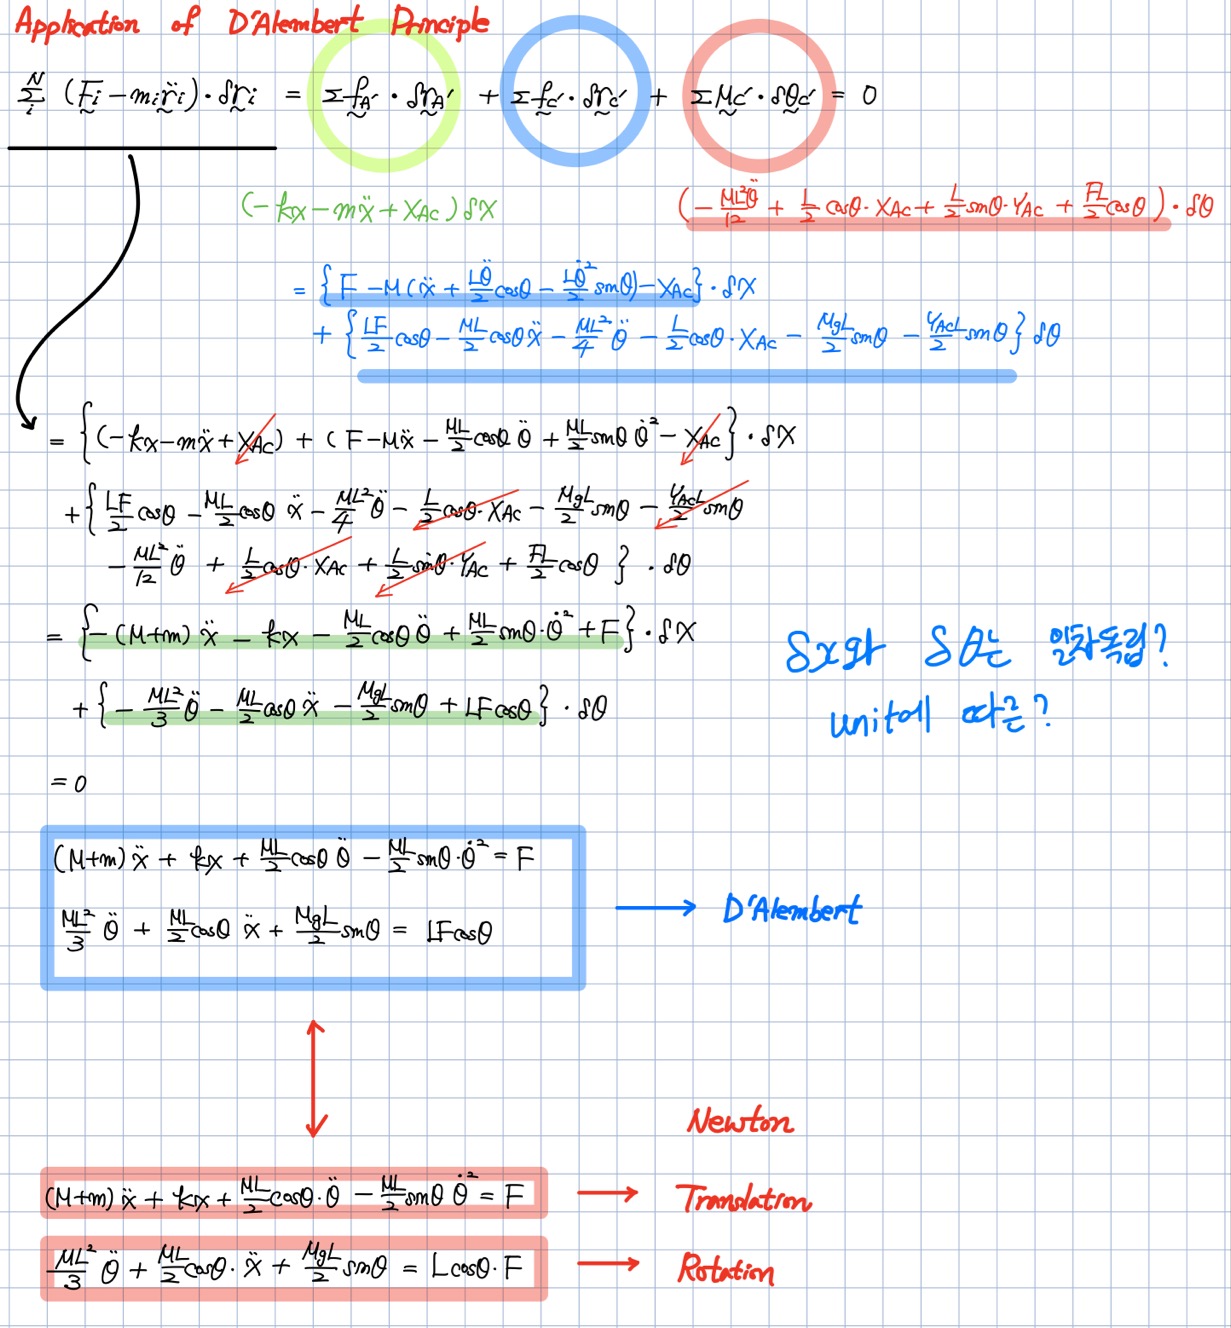 Application of D'Alembert Principle
N Σ i (Fi - mi r̈i) · δri = Σ fA' · δrA' + Σ fc' · δrc' + Σ Mc' · δθc' = 0
(-kx - mẍ + XAc) δx
(- ML²θ̈/12 + L/2 cosθ · XAc + L/2 sinθ · YAc + FL/2 cosθ) · δθ
= {F - M(ẍ + Lθ̈/2 cosθ - Lθ̇²/2 sinθ) - XAc} · δx
+ {LF/2 cosθ - ML/2 cosθ ẍ - ML²/4 θ̈ - L/2 cosθ · XAc - MgL/2 sinθ - YAcL/2 sinθ} δθ
= {(-kx - mẍ + XAc) + (F - Mẍ - ML/2 cosθ θ̈ + ML/2 sinθ θ̇² - XAc} · δx
+ {LF/2 cosθ - ML/2 cosθ ẍ - ML²/4 θ̈ - L/2 cosθ · XAc - MgL/2 sinθ - YAcL/2 sinθ
- ML²/12 θ̈ + L/2 cosθ · XAc + L/2 sinθ · YAc + FL/2 cosθ } · δθ
= {-(M+m) ẍ - kx - ML/2 cosθ θ̈ + ML/2 sinθ · θ̇² + F} · δx
+ {- ML²/3 θ̈ - ML/2 cosθ ẍ - MgL/2 sinθ + LF cosθ} · δθ
δx와 δθ는 일차독립?
unit에 따른?
= 0
(M+m) ẍ + kx + ML/2 cosθ θ̈ - ML/2 sinθ · θ̇² = F
ML²/3 θ̈ + ML/2 cosθ ẍ + MgL/2 sinθ = LF cosθ
→ D'Alembert
Newton
(M+m) ẍ + kx + ML/2 cosθ · θ̈ - ML/2 sinθ θ̇² = F → Translation
ML²/3 θ̈ + ML/2 cosθ · ẍ + MgL/2 sinθ = L cosθ · F → Rotation